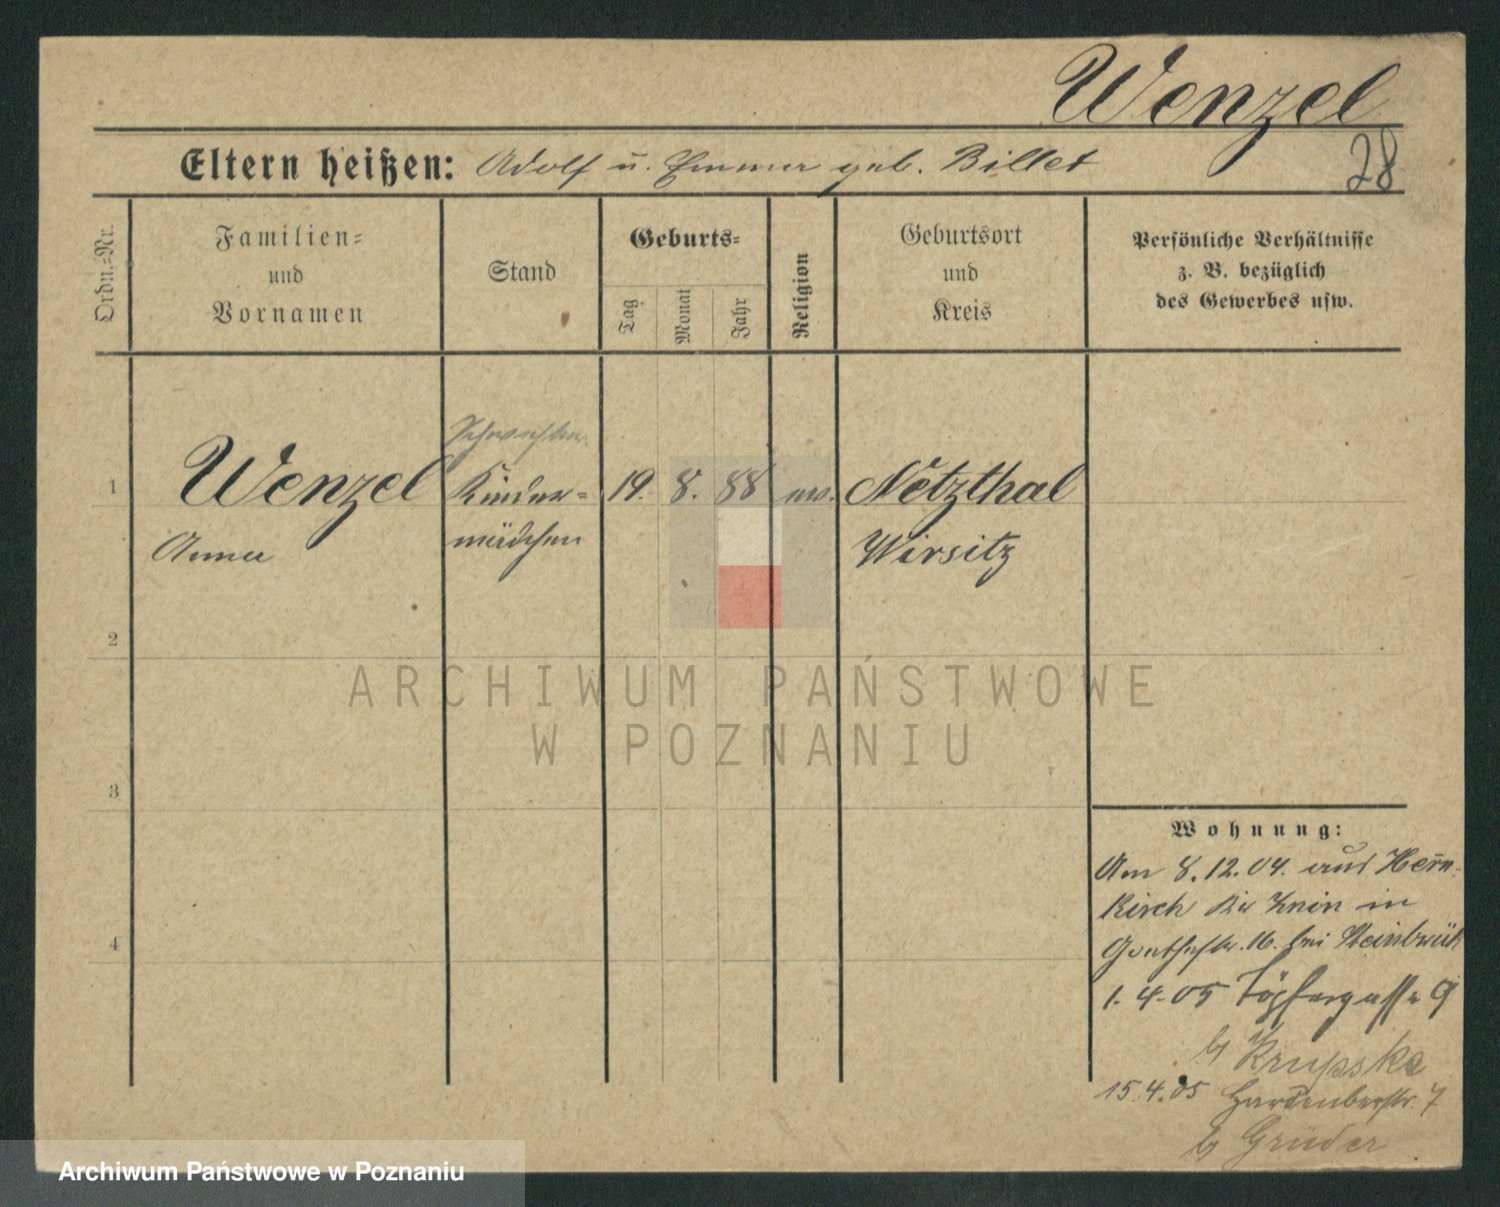 Wenzel
28
Eltern heißen: Adolf u. Emma geb. Billet
Ordn.-Nr.
Familien-
und
Vornamen
Stand
Geburts-
Tag
Monat
Jahr
Religion
Geburtsort
und
Kreis
Persönliche Verhältnisse
z. B. bezüglich
des Gewerbes usw.
1
Wenzel
Anna
Kinder-
mädchen
19.
8.
88
ev.
Netzthal
Wirsitz
2
3
4
ARCHIWUM PAŃSTWOWE
W POZNANIU
Wohnung:
Am 8.12.04. aus Herrn-
kirch Kr Znin in
Goethestr. 16. bei Steinbrück
1.4.05 Töpfergasse 9
b/ Krupska
15.4.05 Hardenbergstr. 7
b/ Grüder
Archiwum Państwowe w Poznaniu